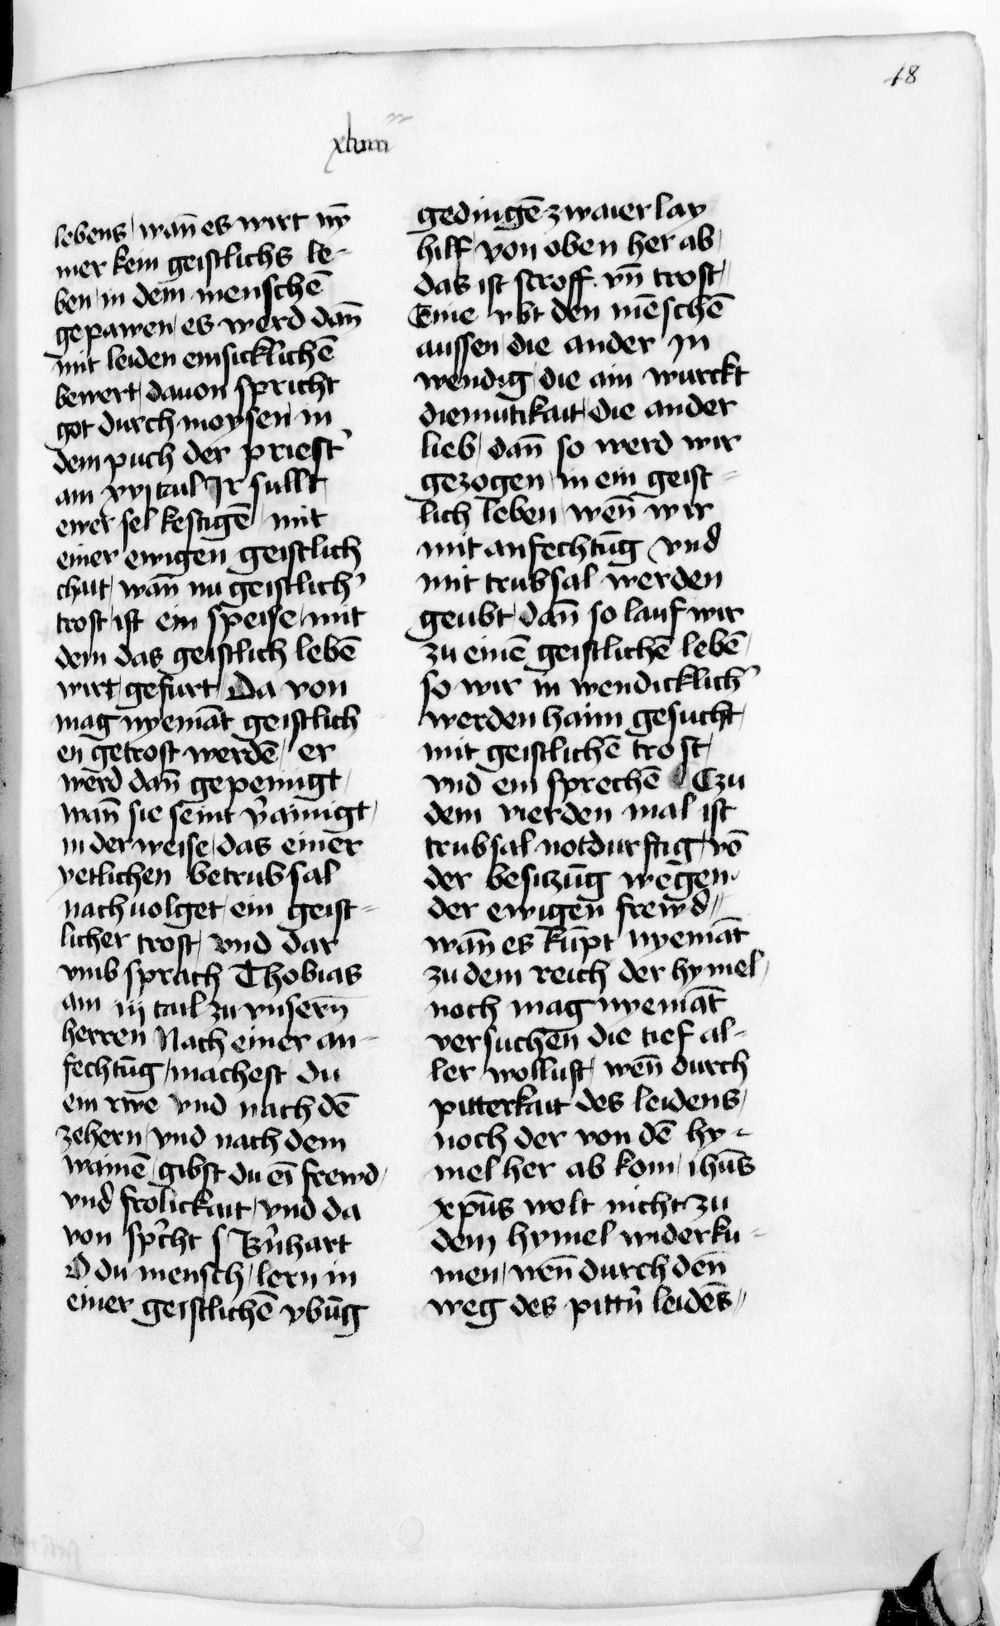 48
xlviii
lebens / wan̄ es wirt nȳ
mer kein geistlichs le-
ben / in dem menschē
gepawen / es werd dan̄
mit leiden emsicklichē
bewert / dauon spricht
got durch moysen in
dem puch der priest̓
am xvj tail Ir sullt
ewer sel kestigē / mit
einer ewigen geistlich
chait / wan̄ nu geistlich̓
trost / ist ein speise / mit
dem das geistlich lebē
wirt / gefurt / Da von
mag nyemāt geistlich
en getrost werdē / er
werd dan̄ gepeinigt /
wan̄ sie seint v̓ainigt /
in der weise / das einer
yetlichen betrubsal
nachuolget / ein geist-
licher trost / vnd dar
vmb sprach Thobias
am iij tail zu vnsern̄
herren Nach einer an-
fechtūg / machest du
ein rwe vnd nach dē
zehern / vnd nach dem
wainē / gibst du eī frewd /
vnd frolickait / vnd da
von sp̓cht s B̓nhart
O du mensch / lern in
einer geistlichē vbūg
gedingē zwaier lay
hilf / von oben her ab /
das ist stroff vn̄ trost /
Eine vbt den mēschē
aussen / die ander In
wendig / die ain wurckt
diemutikait / die ander
lieb / dan̄ so werd wir
gezogen / in ein geist-
lich leben / wen̄ wir
mit anfechtūg vnd
mit trubsal werden
geubt / dan̄ so lauf wir
zu einē geistlichē lebē /
so wir in wendicklich̓
werden haim gesucht /
mit geistlichē trost /
vnd ein sprechē Czu
dem vierden mal ist
trubsal notdurftig / vō
der besiczūg wegen
der ewigen frewd //
wan̄ es kūpt nyemāt
zu dem reich der hymel /
noch mag nyemāt
versuchen die tief al-
ler wollust / wen̄ durch
pitterkait des leidens /
noch der von dē hy-
mel her ab kom / ihūs
xp̄us wolt nicht zu
dem hymel widerku-
men / wen̄ durch den̄
weg des pitt̓n leidēs //